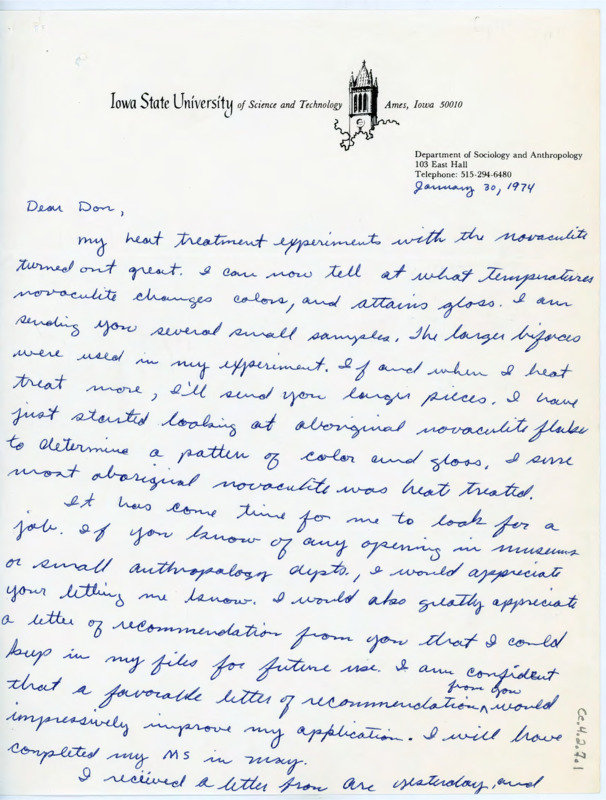 Iowa State University of Science and Technology Ames, Iowa 50010
Department of Sociology and Anthropology
103 East Hall
Telephone: 515-294-6480
January 30, 1974
Dear Don,
My heat treatment experiments with the novaculite
turned out great. I can now tell at what temperatures
novaculite changes colors, and attains gloss. I am
sending you several small samples. The larger bifaces
were used in my experiment. If and when I heat
treat more, I'll send you larger pieces. I have
just started looking at aboriginal novaculite flakes
to determine a pattern of color and gloss. I
most aboriginal novaculite was heat treated.
It has come time for me to look for a
job. If you know of any opening in museums
or small anthropology depts., I would appreciate
your letting me know. I would also greatly appreciate
a letter of recommendation from you that I could
keep in my files for future use. I am confident
that a favorable letter of recommendation from you would
impressively improve my application. I will have
completed my MS in May.
I received a letter from Are yesterday, and
Cc.4.2.7.1